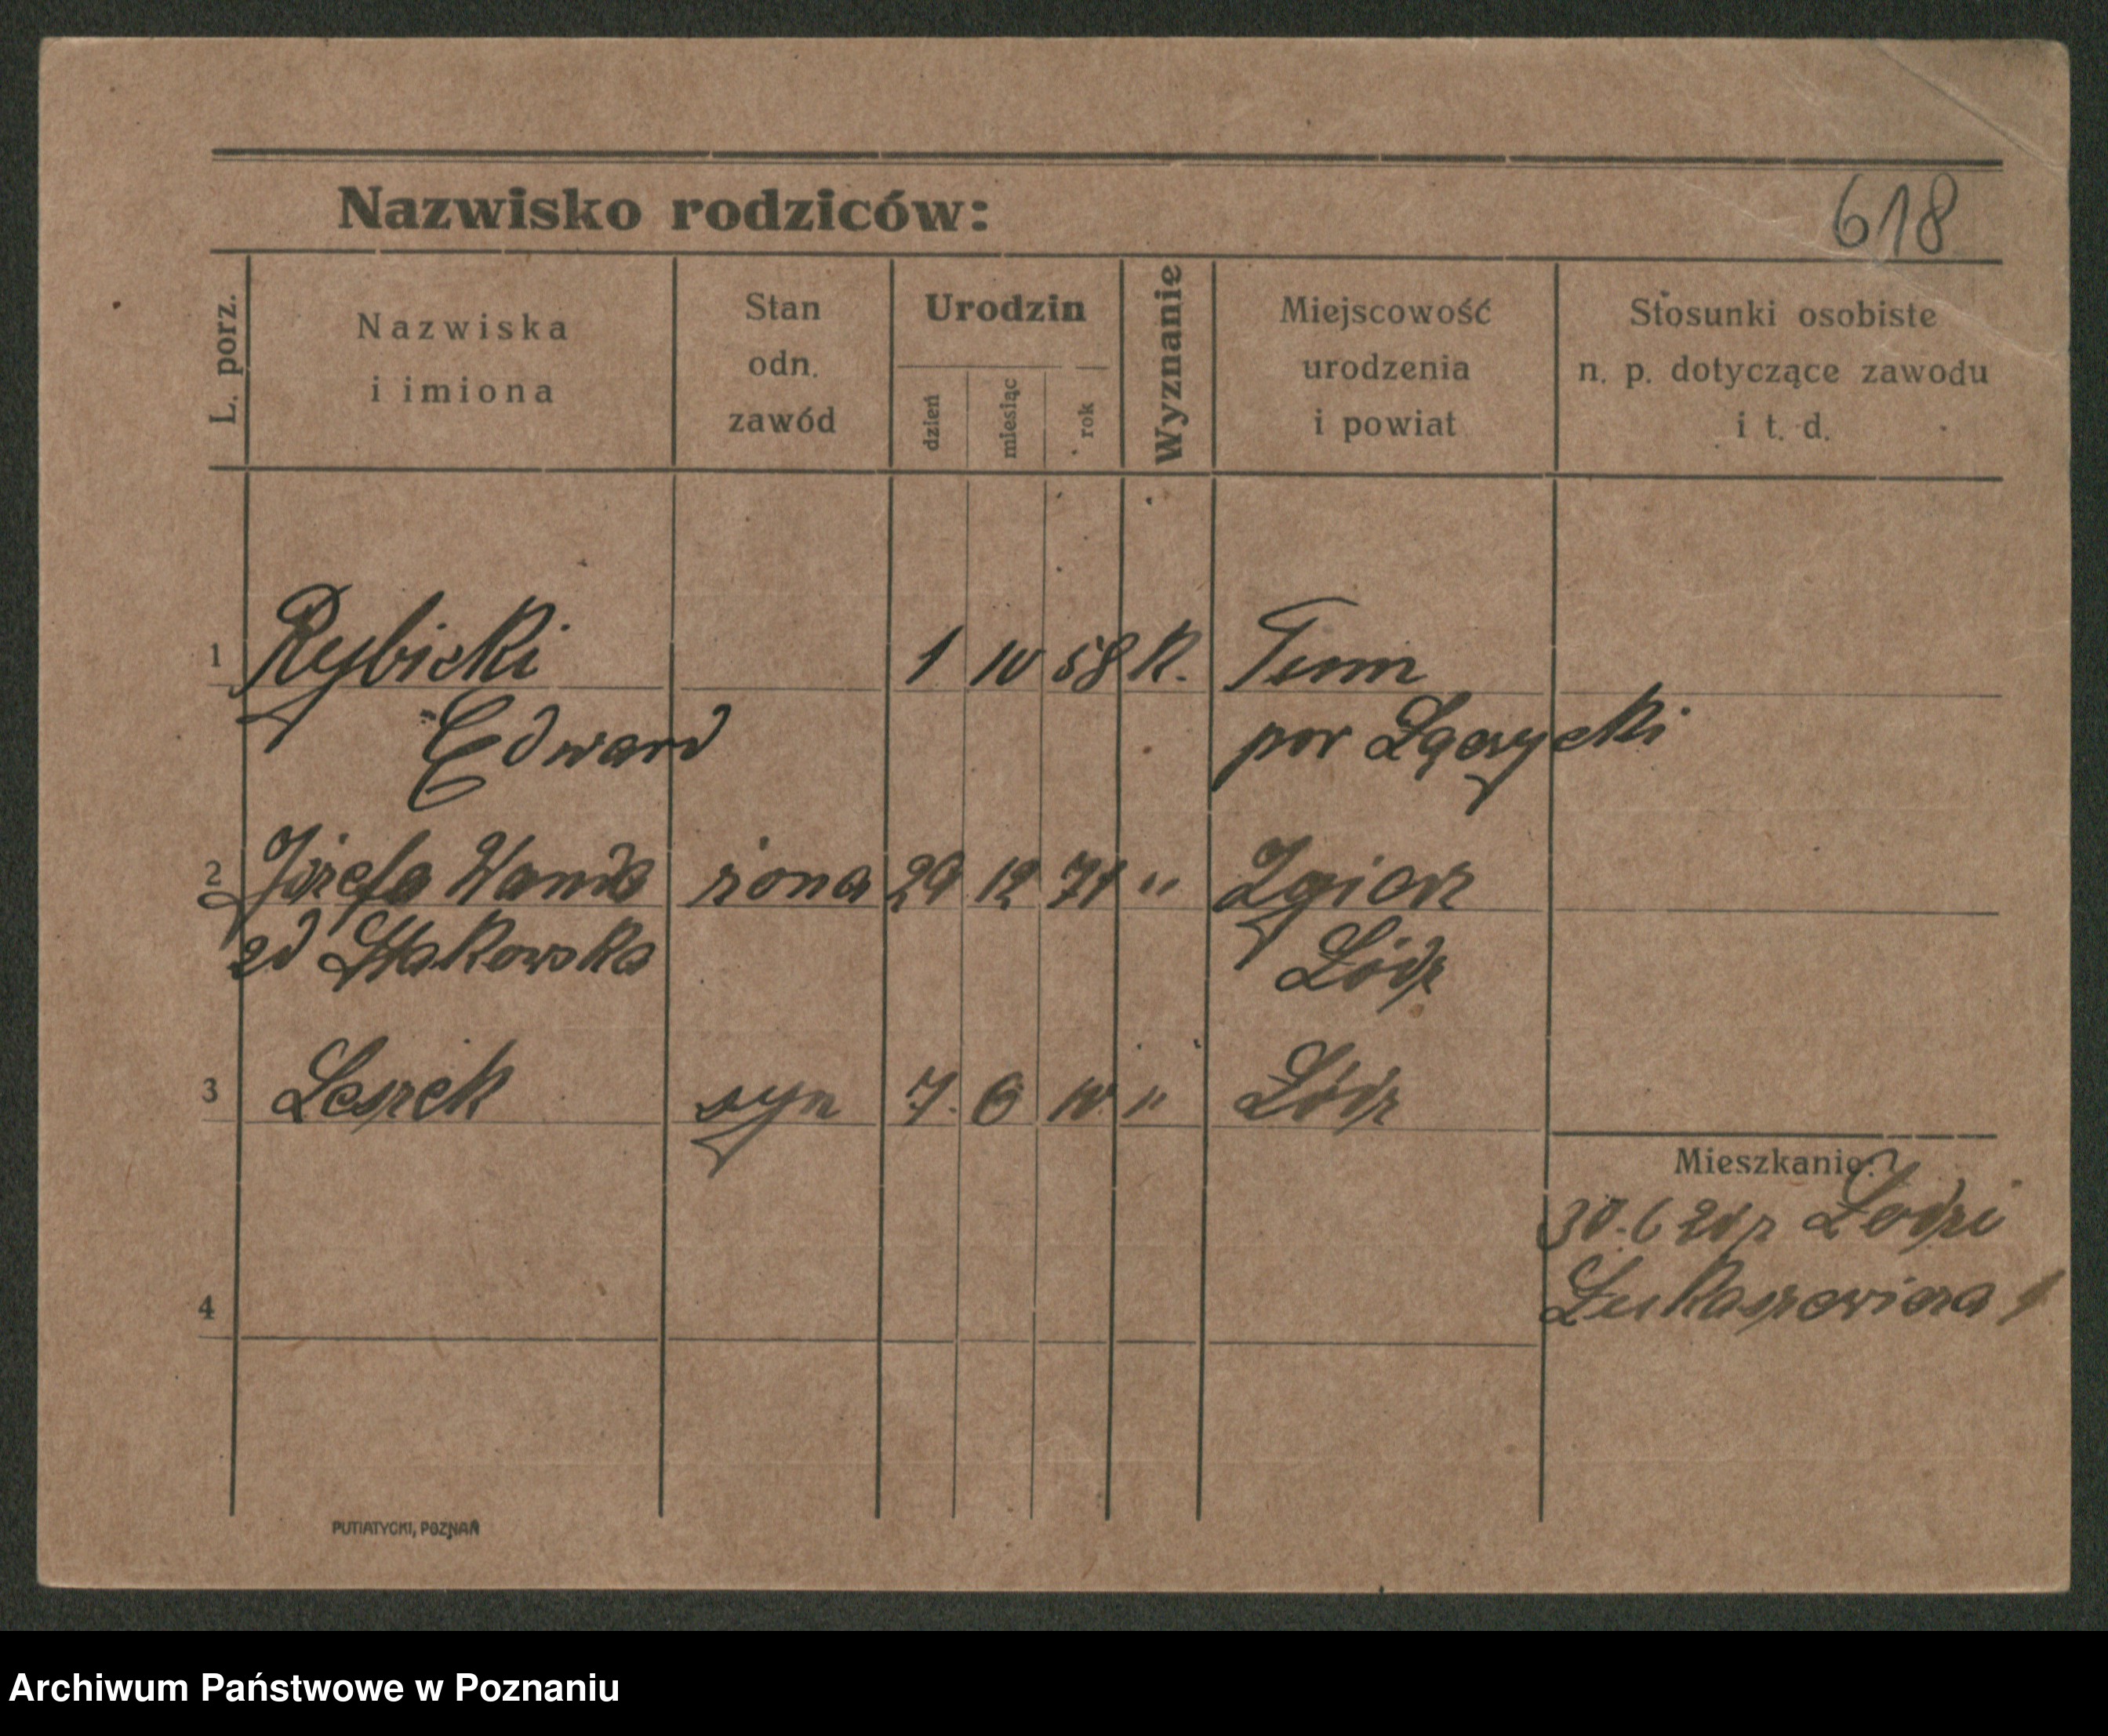 Nazwisko rodziców:
618
L. porz.
Nazwiska
i imiona
Stan
odn.
zawód
Urodzin
dzień
miesiąc
rok
Wyznanie
Miejscowość
urodzenia
i powiat
Stosunki osobiste
n. p. dotyczące zawodu
i t. d.
1 Rybicki 1 10 58 K. Tum
Edward pow Łęczycki
2 Józefa Wanda żona 29 12 71 " Zgierz
zd Łódź
3 Leszek syn 7. 6 10. " Łódź
Mieszkanie:
30.6 21 z Łodzi
Łukaszewicza 1
4
PUTIATYCKI, POZNAŃ
Archiwum Państwowe w Poznaniu